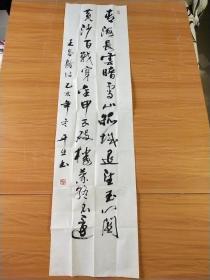 青海長雲暗雪山孤城遥望玉门關
黄沙百戰穿金甲不破樓蘭終不還
王昌齡詩乙亥年冬平生书